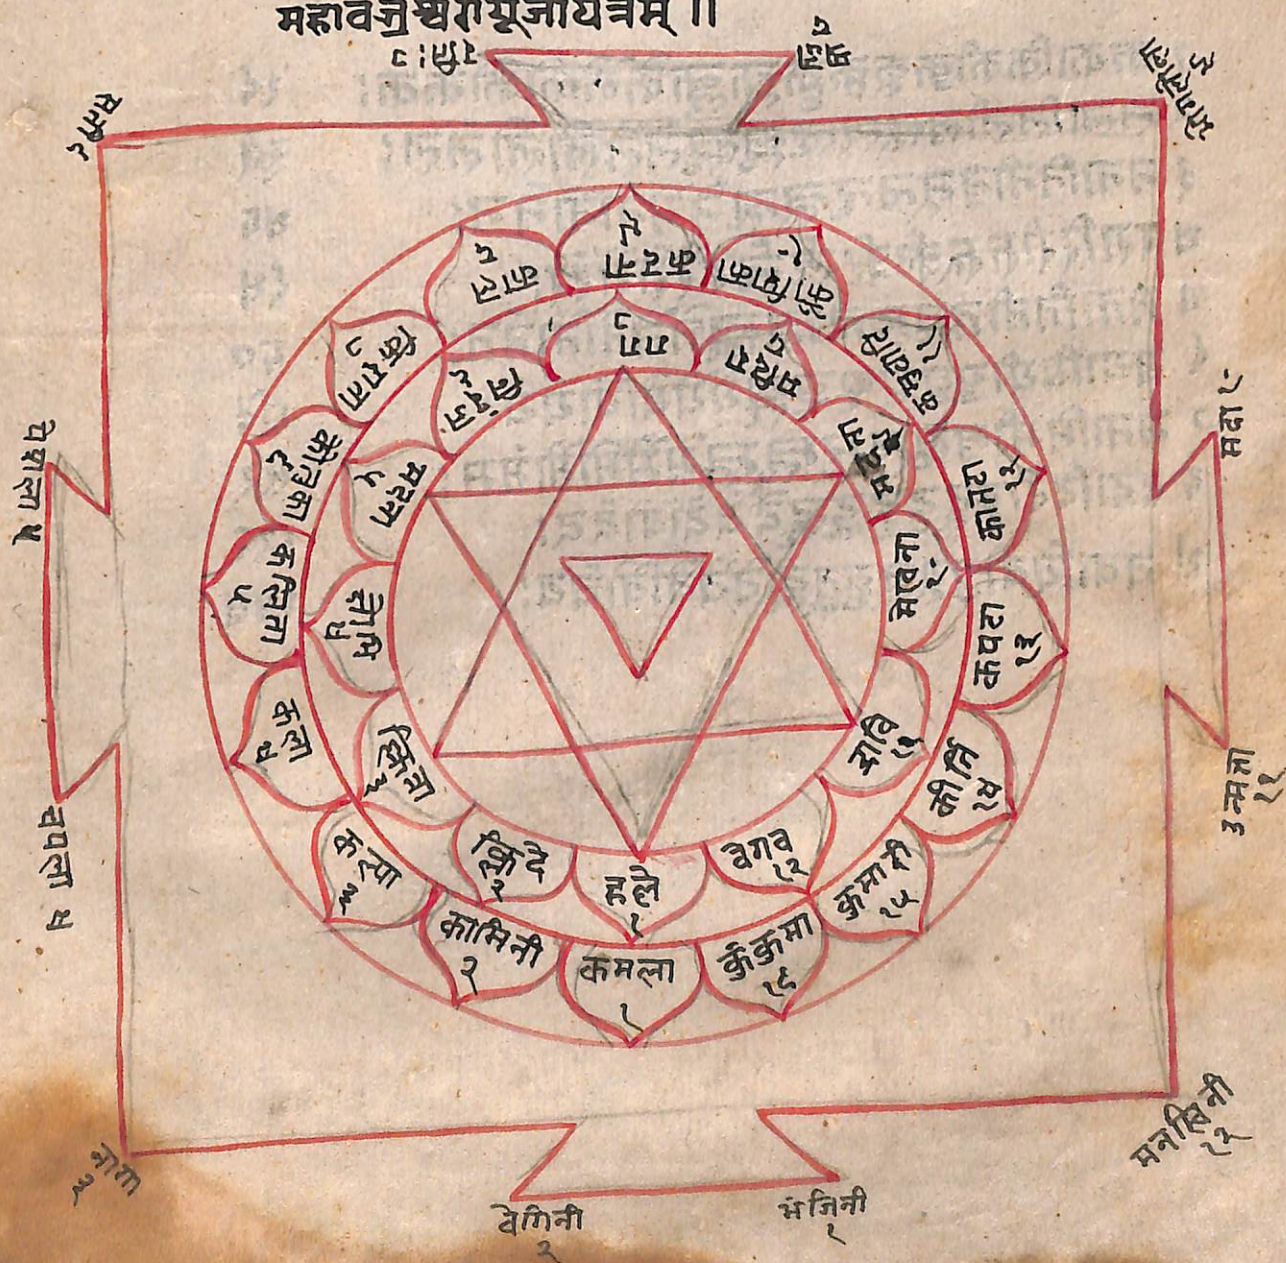 महावज्रेश्वरीपूजायंत्रम् ॥
कमला
१
कामिनी
२
कल्पा
३
कला
४
कलिता
५
कौतका
६
किराता
७
काल
८
कदना
९
कौशिका
१०
११
कातरा
१२
कपटा
१३
कीर्ति
१४
कुमारी
१५
कुंकुमा
१६
हृले
१
क्लिदे
२
क्लिन्ना
३
४
मदना
५
६
७
मदिरा
८
९
मेखला
१०
द्रावि
११
वेगव
१२
भंजिनी
१
वेगिनी
२
नागा
३
चपला ४
पेशला ५
सती ६
रतिः ७
श्रद्धा
८
भोगलोला
९
मदा १०
उन्मत्ता
११
मनस्विनी
१२